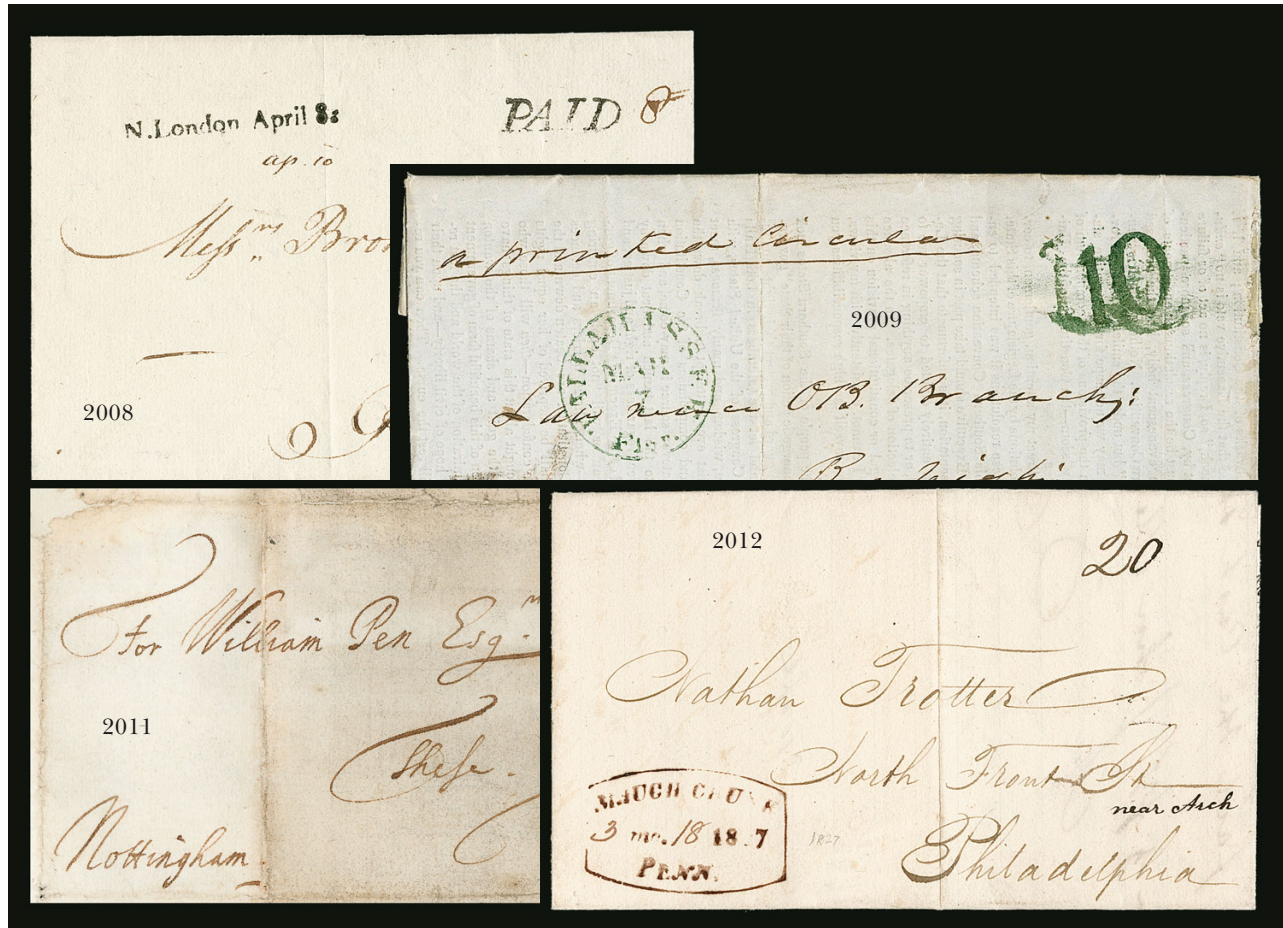 N.London April 8:
PAID 8
ap. 10
Messrs Bro
2008
a printed Circular
10
2009
TALLAHASSEE
MAR
7
Flor.
Lawrence OB. Branch;
Raleigh
For William Pen Esqr
2011
These.
Nottingham
2012
20
Nathan Trotter
North Front St
near Arch
Philadelphia
MAUCH CHUNK
3 mo. 18 18 7
PENN.
1827